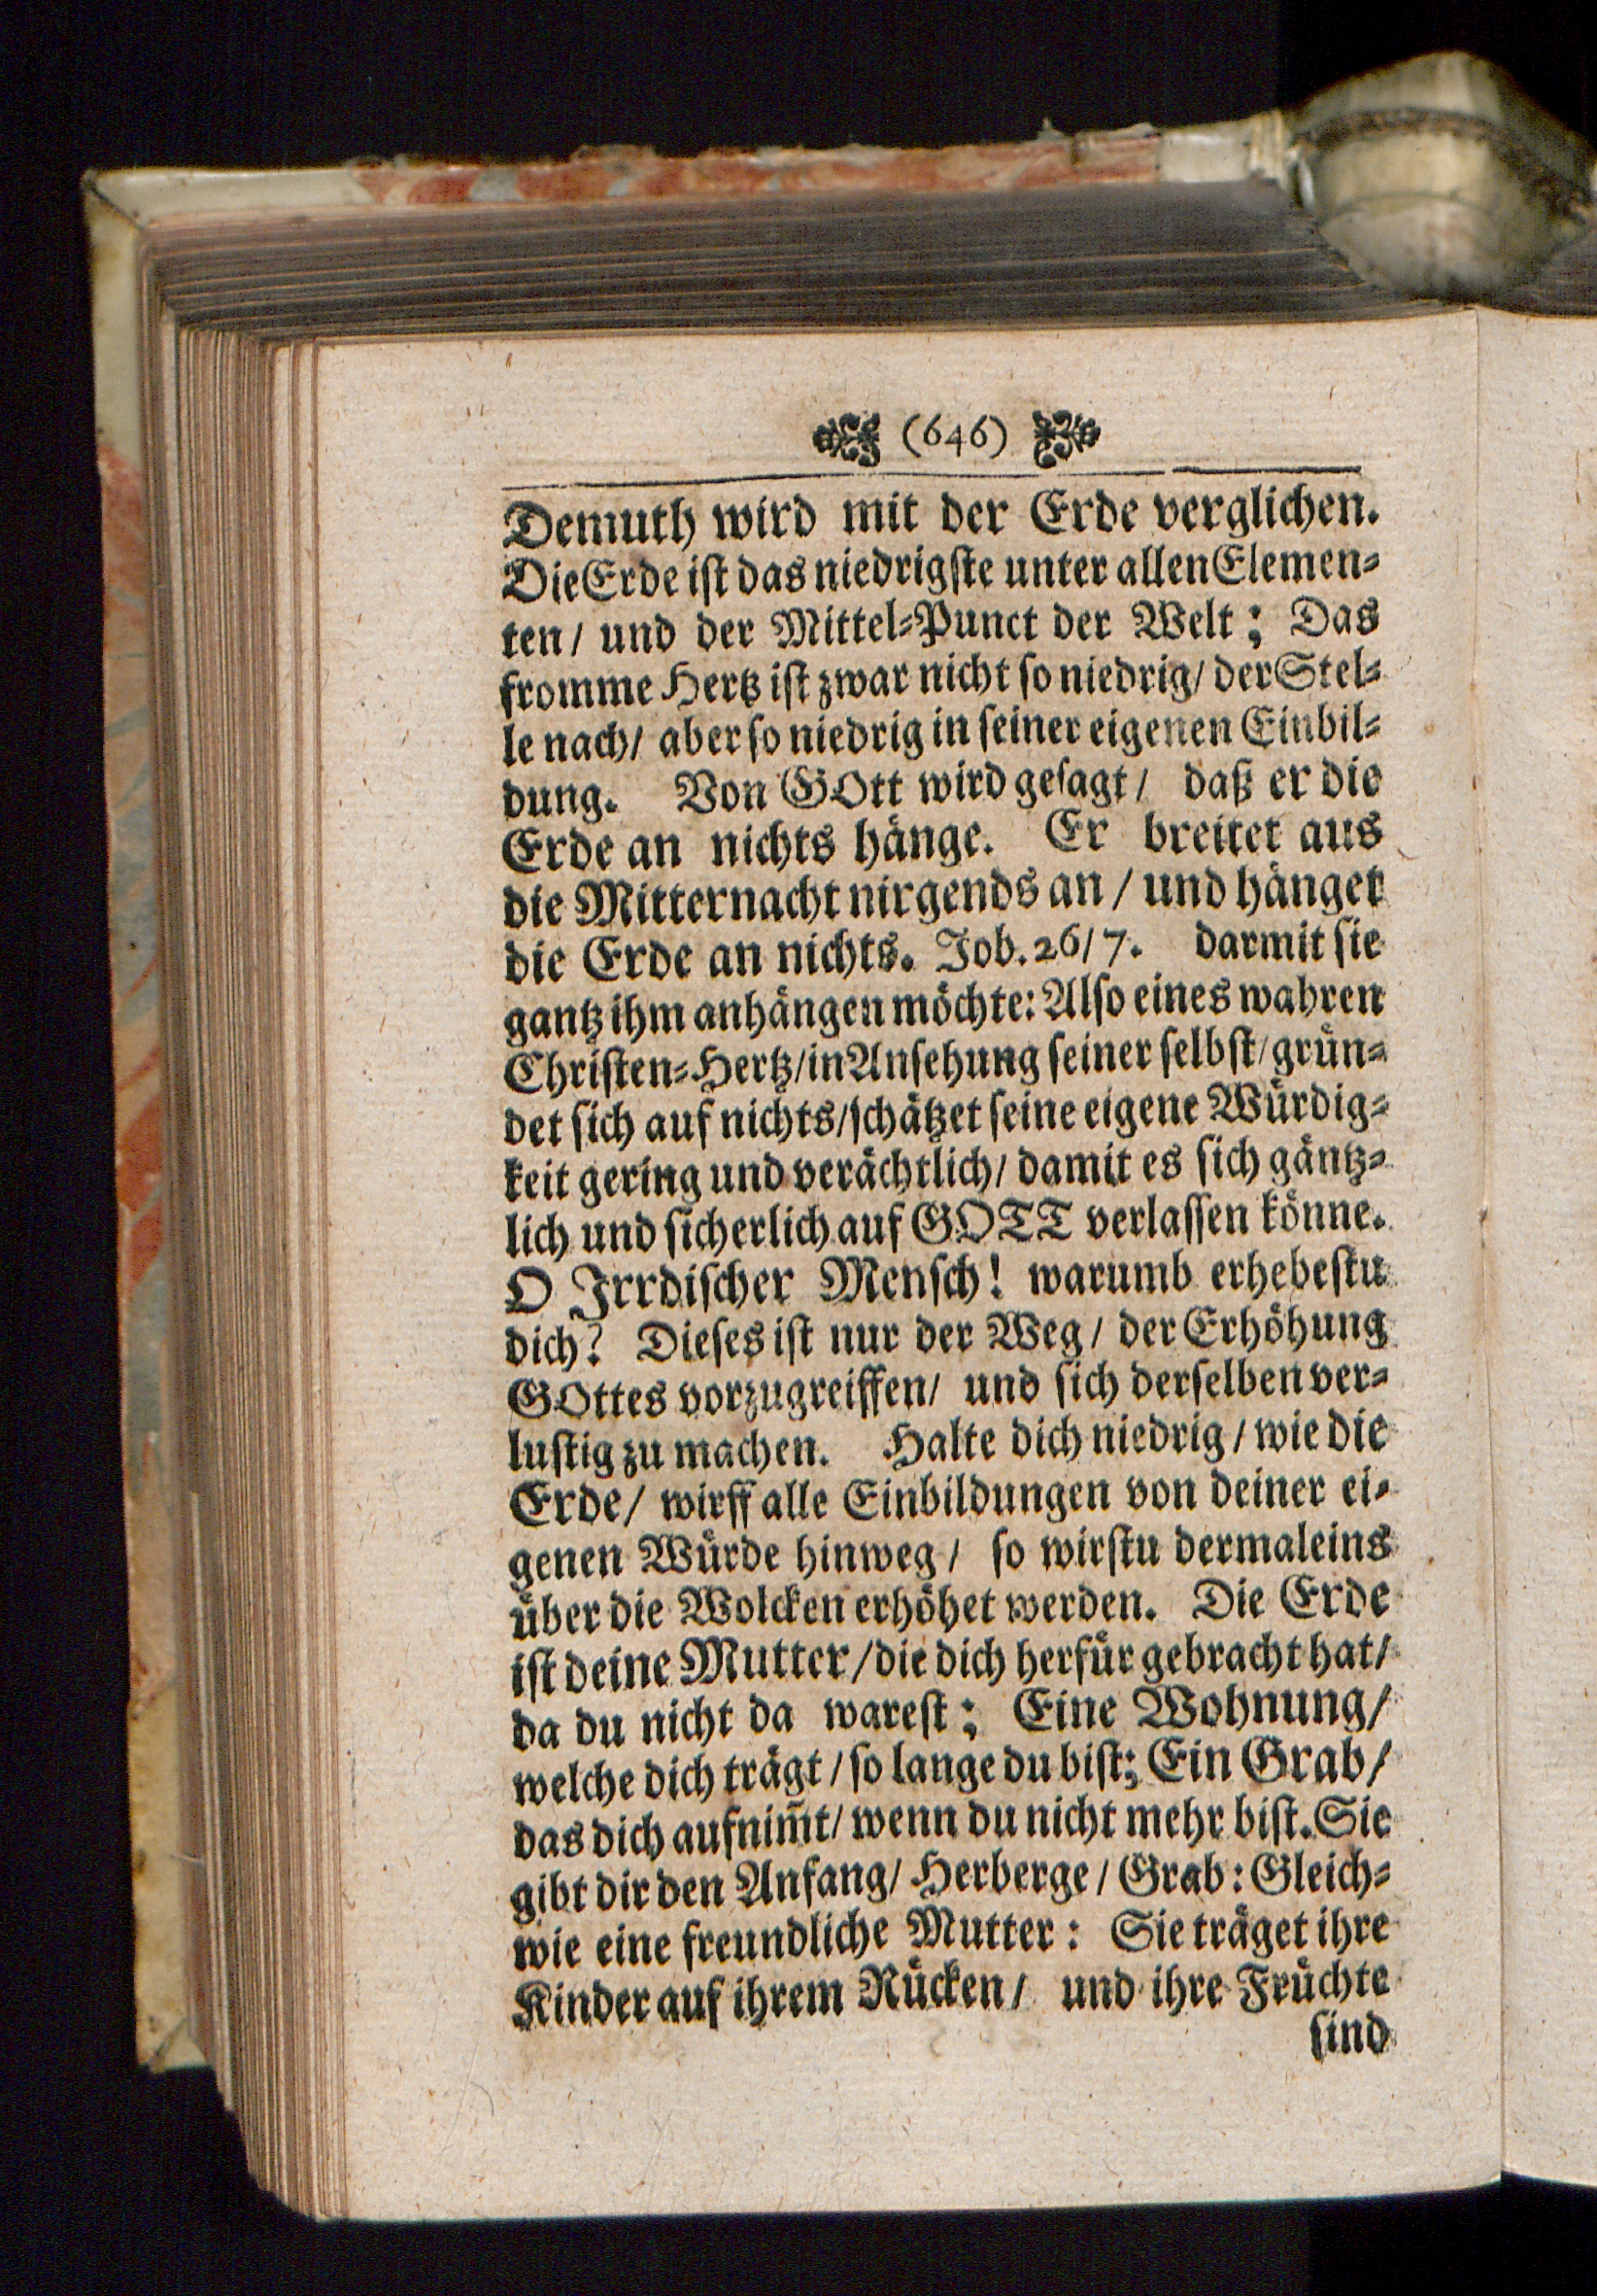 (646)
Demuth wird mit der Erde verglichen.
Die Erde ist das niedrigste unter allen Elemen⸗
ten / und der Mittel⸗Punct der Welt; Das
fromme Hertz ist zwar nicht so niedrig / der Stel⸗
le nach / aber so niedrig in seiner eigenen Einbil⸗
dung. Von GOtt wird gesagt / daß er die
Erde an nichts hänge. Er breitet aus
die Mitternacht nirgends an / und hänget
die Erde an nichts. Job. 26 / 7. darmit sie
gantz ihm anhängen möchte: Also eines wahren
Christen⸗Hertz / in Ansehung seiner selbst / grün⸗
det sich auf nichts / schätzet seine eigene Würdig⸗
keit gering und verächtlich / damit es sich gäntz⸗
lich und sicherlich auf GOTT verlassen könne.
O Irrdischer Mensch! warumb erhebestu
dich? Dieses ist nur der Weg / der Erhöhung
GOttes vorzugreiffen / und sich derselben ver⸗
lustig zu machen. Halte dich niedrig / wie die
Erde / wirff alle Einbildungen von deiner ei⸗
genen Würde hinweg / so wirstu dermaleins
über die Wolcken erhöhet werden. Die Erde
ist deine Mutter / die dich herfür gebracht hat /
da du nicht da warest; Eine Wohnung /
welche dich trägt / so lange du bist; Ein Grab /
das dich aufnim̃t / wenn du nicht mehr bist. Sie
gibt dir den Anfang / Herberge / Grab: Gleich⸗
wie eine freundliche Mutter: Sie träget ihre
Kinder auf ihrem Rücken / und ihre Früchte
sind